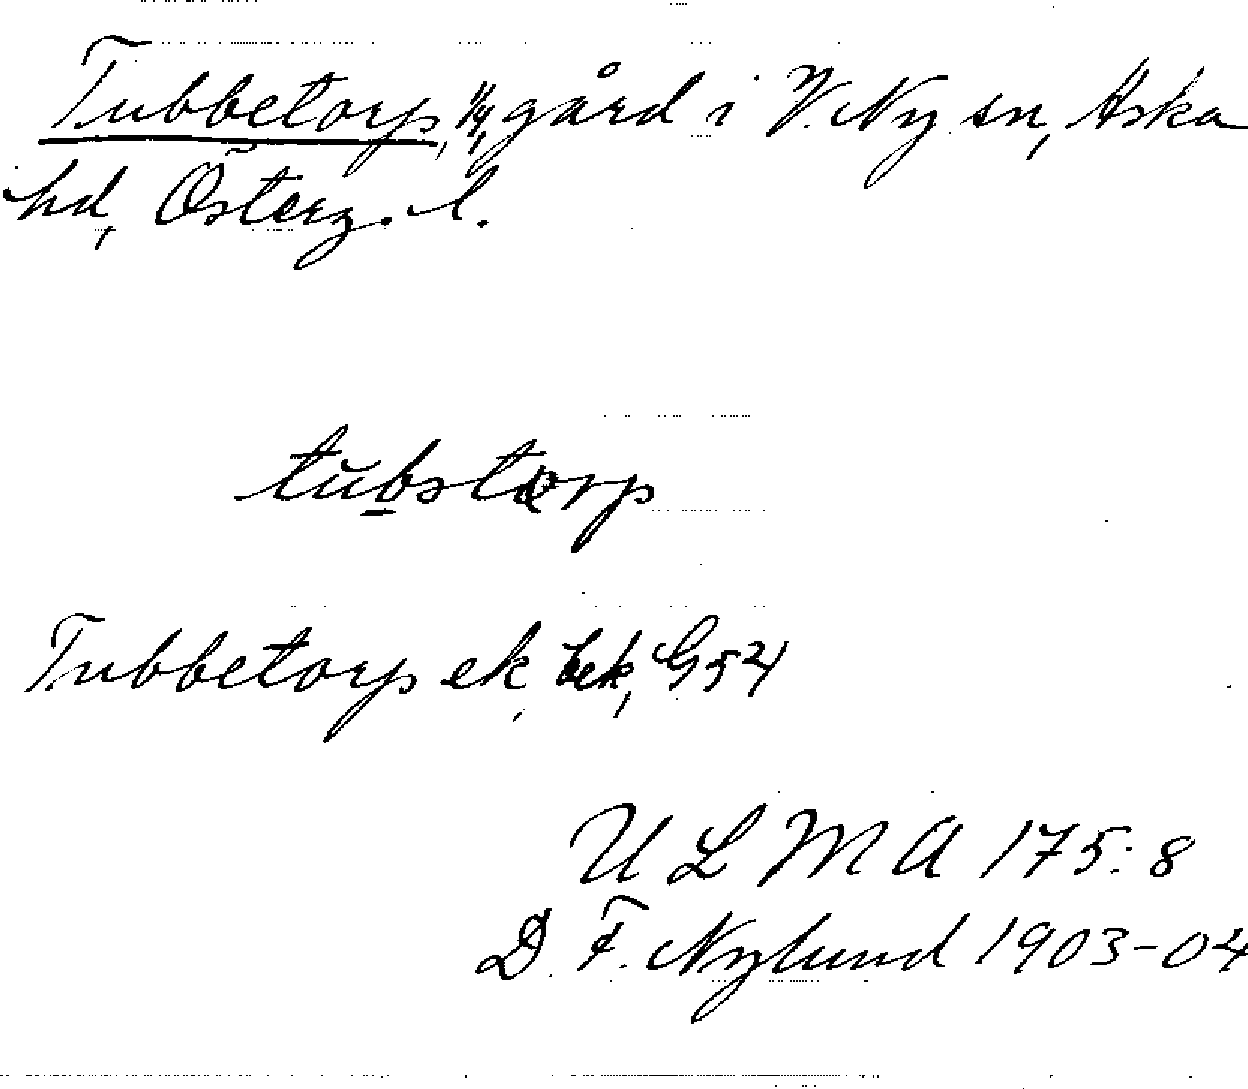 Tubbetorp, 1/4, gård i V. Ny sn, Aska
hd, Österg. l.
tŭbstorp
Tubbetorp ek, bek, G 54
U L M A 175:8
D. F. Nylund 1903-04